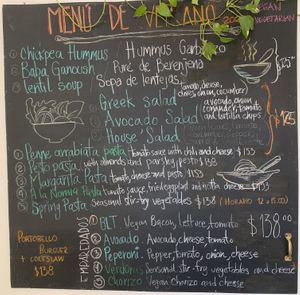 MENÚ DE VERANO
VEGAN
VEGETARIAN
Chickpea Hummus
Hummus Garbanzo
Baba Ganoush
Puré de Berenjena
Lentil Soup
Sopa de lentejas
$125
Greek Salad
Avocado Salad
avocado, onion,
and tortilla chips
House Salad
$125
① Penne arrabiata pasta tomato sauce with chili and cheese $153
② Pesto pasta with almonds and parsley/pesto $138
③ Margarita Pasta tomato, cheese and pesto $153
④ A la Norma Pasta tomato sauce, fried eggplant and ricotta cheese
⑤ Spring Pasta Seasonal stir-fry vegetables $138 (HORARIO 12 a 15:00)
EMPAREDADOS
$138.00
① BLT Vegan Bacon, lettuce, tomato
② Avocado Avocado, cheese, tomato
③ Peperoni Pepper, tomato, onion, cheese
④ Verduras Seasonal stir-fry vegetables and cheese
⑤ Chorizo Vegan Chorizo and cheese
PORTOBELLO
BURGUER
+ COLESLAW
$138